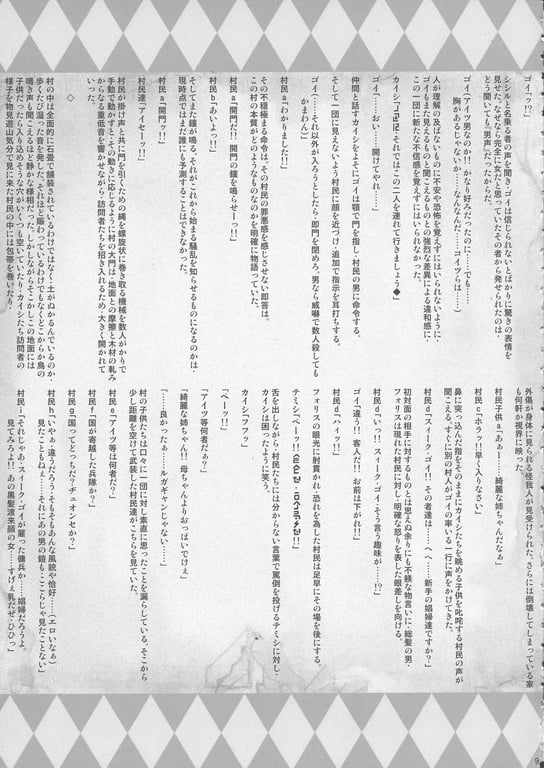 ゴイ「ッ!!」
シシルと名乗る者の声を聞きゴイは信じられないとばかりに驚きの表情を
見せた。なぜなら完全に女だと思っていたその者から発せられたのは、
どう聞いても男声だったからだ。
ゴイ（アイツ男なのか!!かなり好みだったのに……でも……
胸があるじゃないか……なんなんだ……コイツらは……）
人が理解の及ばないものに不安や恐怖を覚えずにはいられないように
ゴイもまた見えるものと聞こえるものとの強烈な差異による違和感に、
この一団に新たな不信感を覚えずにはいられなかった。
それではこの二人を連れて行きましょう◆」
ゴイ「ッ!!」
ゴイ「……おい……開けてやれ……」
仲間と話すカイシをよそにゴイは顎で門を指し、村民の男に命令する。
そして一団に見えないよう村民に顔を近づけ、追加で指示を耳打ちする。
ゴイ「……それ以外が入ろうとしたら、即門を閉めろ。男なら威嚇で数人殺しても
かまわん」
村民a「わかりました!!」
その不穏極まる命令は、その村民の罪悪感を感じさせない即答は、
この村の本質がどのようなものなのかを明確に物語っていた。
村民a「開門だ!!開門の鐘を鳴らせーっ!!」
村民b「あいよっ!!」
そしてまた鐘が鳴る。それがこれから始まる騒乱を知らせるものになるのかは、
現時点ではまだ誰にも予測することはできなかった。
村民a「開門ッ!!」
村民達「アイセーッ!!」
村民が掛け声と共に門を引くための縄を螺旋状に巻き取る機械を数人がかりで
手動で動かす。その動きに応じるように村の大門は、地面との摩擦と木材の軋み
からなる重低音を響かせながら、訪問者たちを招き入れるため、大きく開かれて
いった。
◇
村の中は全面的に石畳で舗装されているわけではなく、土がぬかるんでいるのか、
歩くたび湿った音を発し、それほど賑わっているわけでもなく、どこからか鳥の
鳴き声も聞こえるほど静かな様相だった。しかしながらそこかしこの地面には
子供だったら入り込めそうな穴がいくつも空いていたり、カイシたち訪問者の
様子を物見遊山気分で見に来た村民の中には包帯を巻いたり、
外傷が身体に見られる怪我人が見受けられた。さらには倒壊してしまっている家
も何軒か視界に映った。
村民子供a「あぁ……綺麗な姉ちゃんだぁ」
村民c「ホラッ!!早く入りなさい」
鼻に突っ込んだ指をそのままにカイシたちを眺める子供を叱咤する村民の声が
聞こえると、すぐに別の村人がゴイの率いる一行に声をかけてきた。
村民d「スィーク・ゴイ!!その者達は……へへ……新手の娼婦達ですか?」
初対面の相手に対するものとは思えぬ余りにも不躾な物言いに、総髪の男、
フォリスは現れた村民に対し、明確な怒りを表した眼差しを向ける。
村民d「いっ!!スィーク・ゴイ、そう言う趣味が……!?」
ゴイ「違う!!客人だ!!お前は下がれ!!」
村民d「ハイッ!!」
フォリスの眼光に射貫かれ、恐れを為した村民は足早にその場を後にする。
舌を出しながら、村民たちには分からない言葉で罵倒を投げるテミシに対し、
カイシは困ったように笑う。
カイシ「フフッ」
「ベーッ!!」
「アイツ等何者だぁ?」
「綺麗な姉ちゃん!!母ちゃんよりおっぱいでけぇ」
「……良かったぁ……ルガギャンじゃない……」
村の子供たちは口々に一団に対し素直に思ったことを漏らしている。そこから
少し距離を空けて武装した村民達がこちらを見ていた。
村民e「アイツ等は何者だ?」
村民f「国が寄越した兵隊か?」
村民g「国ってどっちだ?チュオンセか?」
村民h「いやぁ、違うだろう、そもそもあんな風貌や恰好……（エロいなぁ）
見たこともねぇ……それにあの男の鎧もここらじゃ見たことない」
村民i「それじゃあ、スィーク・ゴイが雇った傭兵か……娼婦だろうよ。
見てみろよ!!あの黒髪渡来顔の女……すげぇ乳だぜ、ひひっ」
9